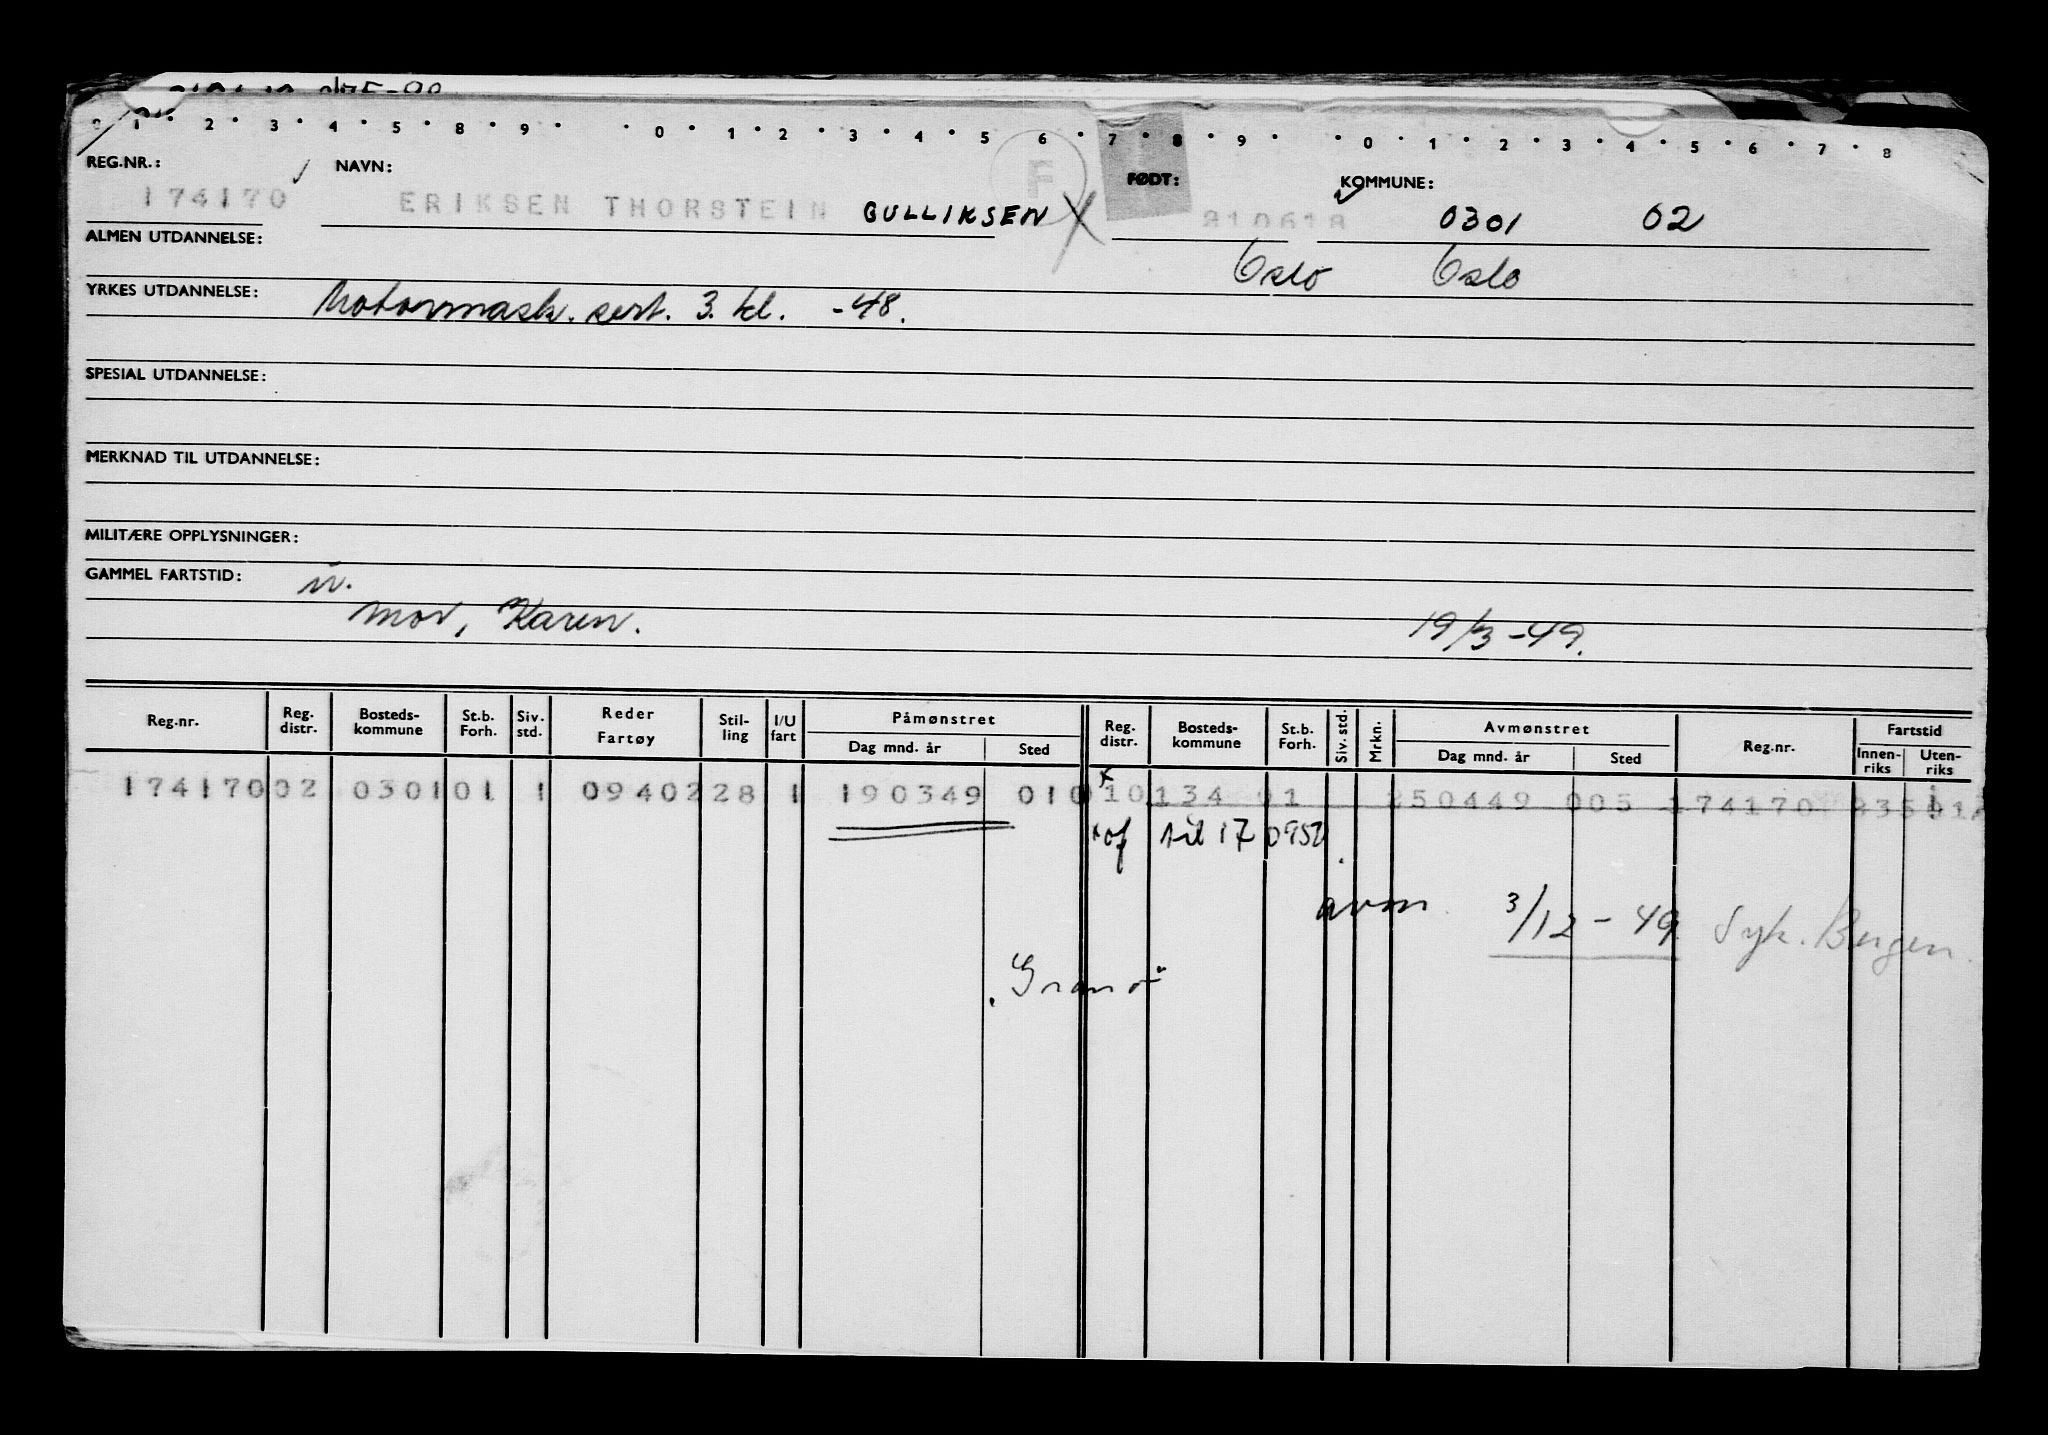 0 1 • 2 • 3 • 4 • 5 • 8 • 9 • • 0 • 1 • 2 • 3 • 4 • 5 6 • 7 • 8 • 9 • • 0 • 1 • 2 • 3 • 4 • 5 • 6 • 7 • 8
REG.NR.: NAVN: F FØDT: KOMMUNE:
174170 ERIKSEN THORSTEIN GULLIKSEN X 210618 0301 02
ALMEN UTDANNELSE: Oslo Oslo
YRKES UTDANNELSE: Motormask. sert. 3. kl. -48.
SPESIAL UTDANNELSE:
MERKNAD TIL UTDANNELSE:
MILITÆRE OPPLYSNINGER:
GAMMEL FARTSTID:
mor, Karen. 19/3-49.
Reg.nr. Reg. distr. Bosteds-kommune St.b. Forh. Siv. std. Reder Fartøy Stil-ling I/U fart Påmønstret Dag mnd. år Sted Reg. distr. Bosteds-kommune St.b. Forh. Siv. std. Mrkn. Avmønstret Dag mnd. år Sted Reg.nr. Fartstid Innen-riks Uten-riks
174170 02 0301 01 1 09402 28 1 190349 010 10 134 01 250449 005 174170
x of til 17 0952
avm 3/12-49 Syk. Bergen.
"Granø"